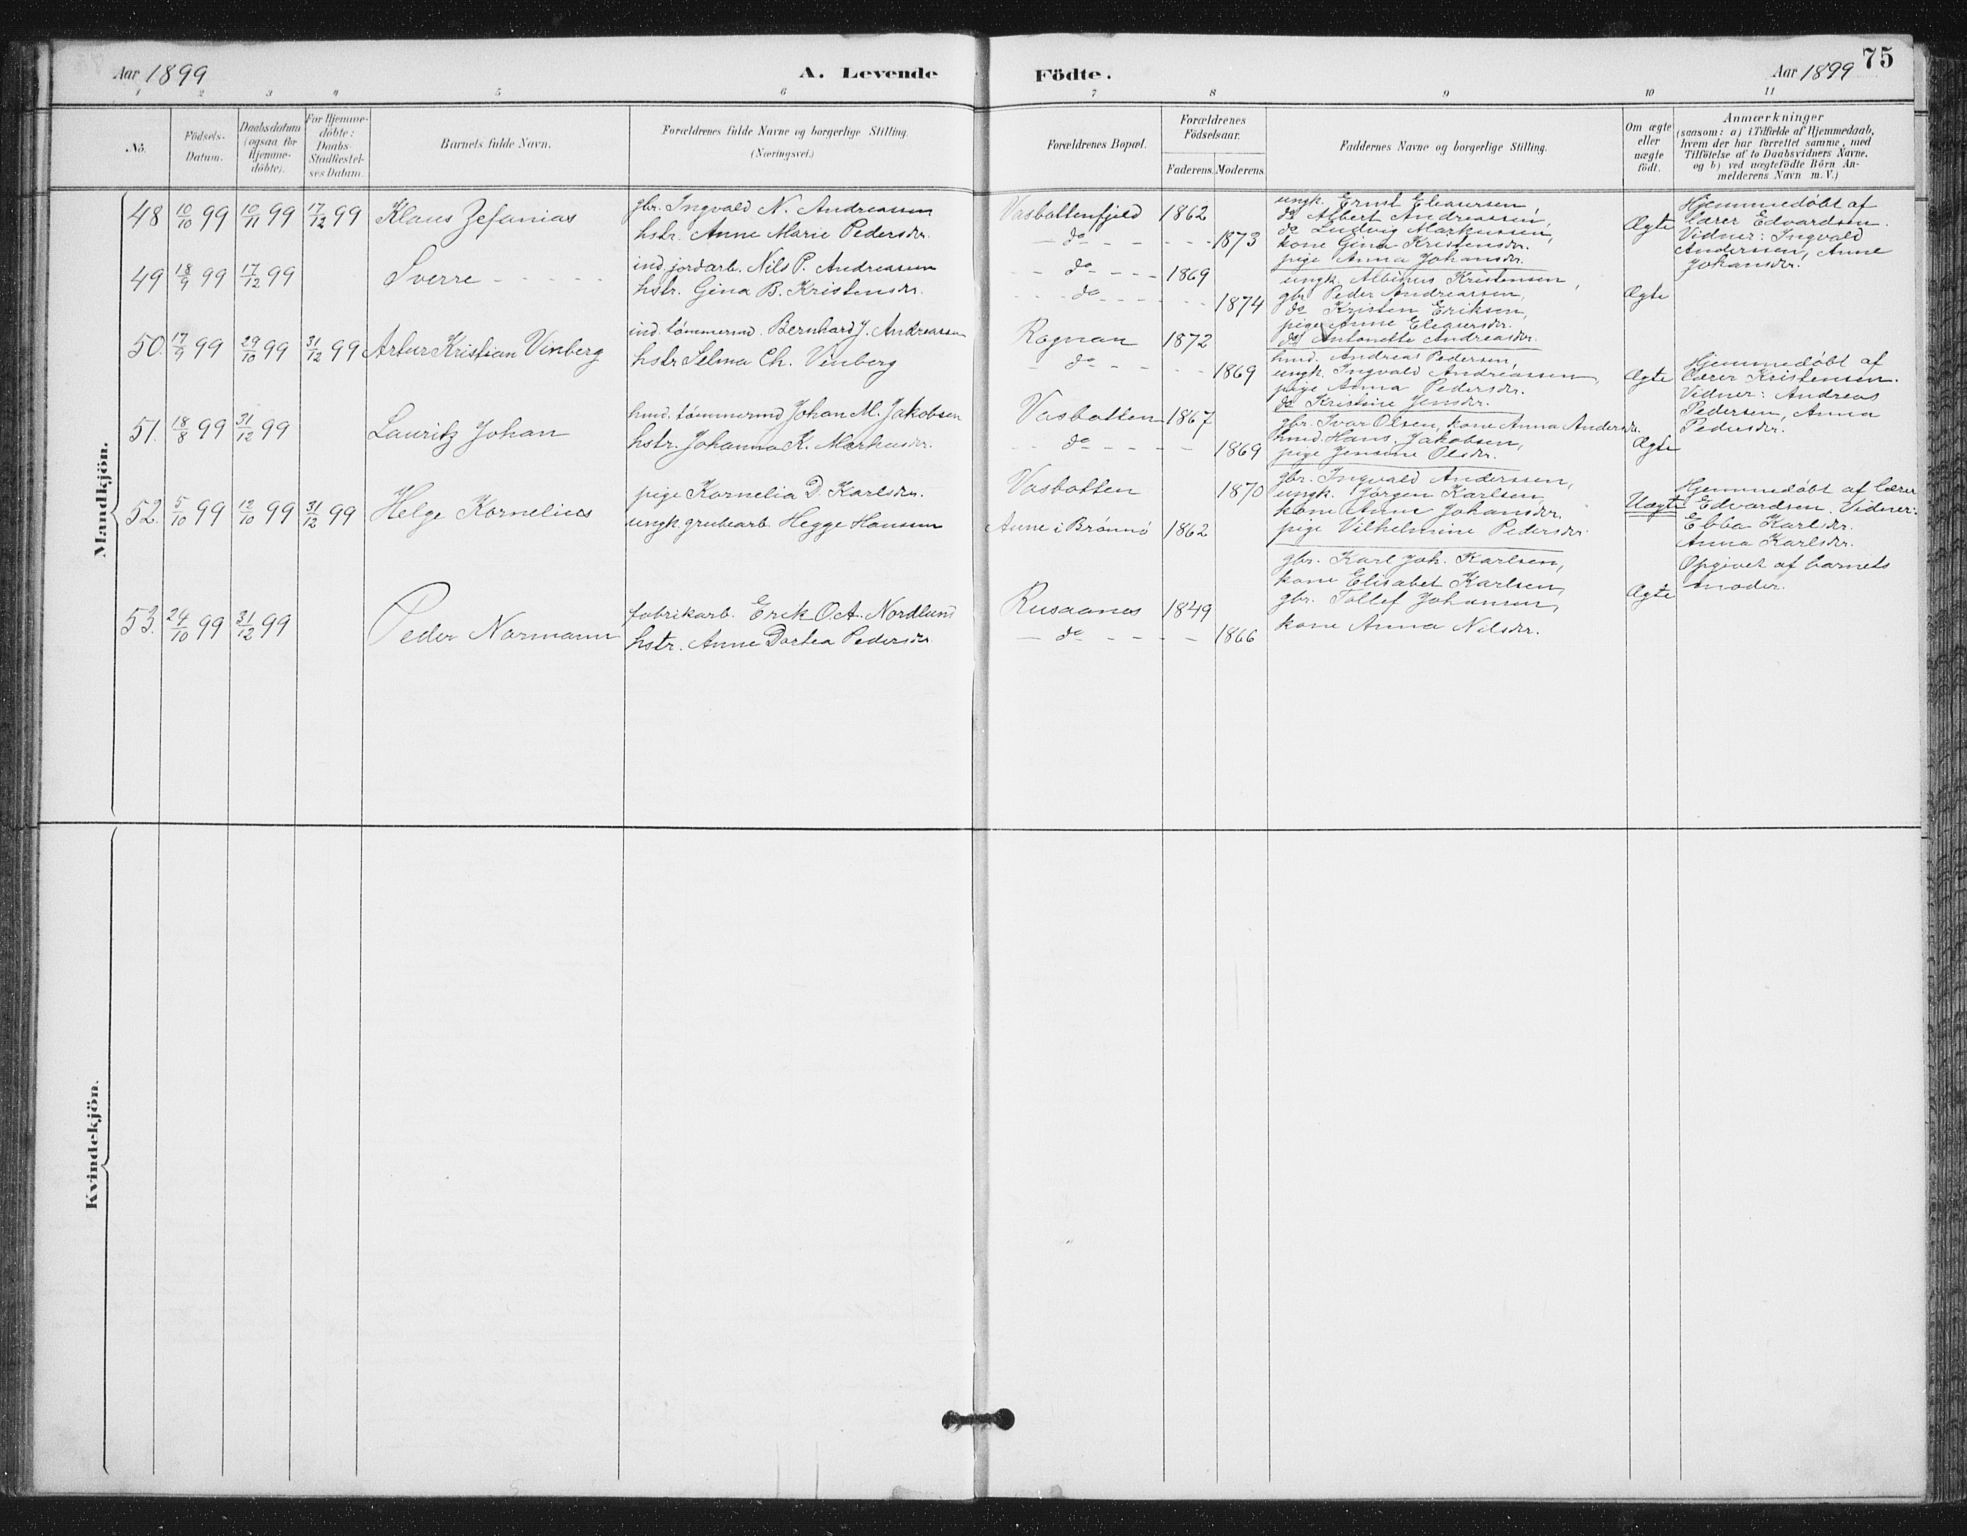 Aar 1899
A. Levende
Födte.
Aar 1899
75
1 2 3 4 5 6 7 8 9 10 11
No.
Födsels-
Datum.
Daabsdatum
(ogsaa for
Hjemme-
döbte).
For Hjemme-
döbte:
Daabs-
Stadfæstel-
ses Datum.
Barnets fulde Navn.
Forældrenes fulde Navne og borgerlige Stilling.
(Næringsvei.)
Forældrenes Bopæl.
Forældrenes
Födselsaar.
Faderens. Moderens.
Faddernes Navne og borgerlige Stilling.
Om ægte
eller
uægte
födt.
Anmærkninger
(saasom: a) i Tilfælde af Hjemmedaab,
hvem der har forrettet samme, med
Tilföielse af to Daabsvidners Navne,
og b) ved uægtefödte Börn An-
melderens Navn m. V.)
Mandkjön.
48 10/10 99 10/11 99 17/12 99 Klaus Zefanias
gbr. Ingvald N. Andreassen
hstr. Anne Marie Pedersdr.
Vasbottenfjeld 1862
do 1873
ungk. Ernst Eleasersen,
do Albert Andreassen,
do Ludvig Markussen,
kone Gina Kristensdr.
pige Anna Johansdr.
Ægte
Hjemmedöbt af
Lærer Edvardsen.
Vidner: Ingvald
Anderssen, Anne
Johansdr.
49 18/9 99 17/12 99 Sverre
ind. jordarb. Nils P. Andreassen
hstr. Gina B. Kristensdr.
do 1869
do 1874
ungk. Albigus Kristensen,
gbr. Peder Andreassen,
do Kristen Eriksen,
pige Anne Eleasersdr.
do Antonette Andreasdr.
Ægte
50. 17/9 99 29/10 99 31/12 99 Artur Kristian Vinberg
ind. tömmermd. Bernhard J. Andreassen
hstr Selma Ch. Vinberg
Rognan 1872
do 1869
hmd. Andreas Pedersen
ungk. Ingvald Andreassen,
pige Anna Pedersdr.
do Kristine Jensdr.
Ægte
Hjemmedöbt af
Lærer Kristensen.
Vidner: Andreas
Pedersen, Anna
Pedersdr.
51. 18/8 99 31/12 99 Lauritz Johan
hmd. tömmermd Johan M. Jakobsen
hstr. Johanna K. Markusdr.
Vasbotten 1867
do 1869
gbr. Ivar Olsen, kone Anna Andersdr.
hmd. Hans Jakobsen,
pige Jensine Olsdr.
Ægte
52. 5/10 99 12/10 99 31/12 99 Helge Kornelius
pige Kornelia D. Karlsdr.
ungk. grubearb. Hegge Hansen
Vasbotten 1870
i Brönnö 1862
gbr. Ingvald Anderssen,
ungk. Jörgen Karlsen,
kone Anne Johansdr.
pige Vilhelmine Pedersdr.
Uægte
Hjemmedöbt af lærer
Edvardsen. Vidner:
Ebba Karlsdr.
Anna Karlsdr.
Opgivet af barnets
moder.
53. 24/10 99 31/12 99 Peder Normann
fabrikarb. Erik O.A. Nordlund
hstr. Anne Dortea Pedersdr.
Rusaanes 1849
do 1866
gbr. Karl Joh. Karlsen,
kone Elisabet Karlsen,
gbr. Tollef Johansen,
kone Anna Nilsdr.
Ægte
Kvindekjön.